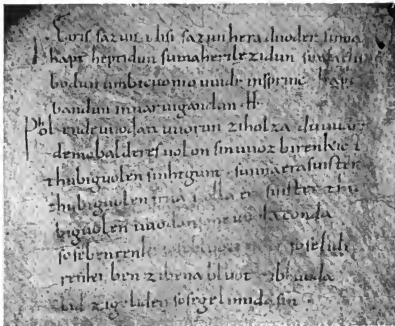 Eiris sazun idisi sazun hera duoder suma
hapt heptidun suma heri lezidun suma clu
bodun umbicuonio uuidi insprinc hapt
bandun inuar uigandun · H ·
Phol ende uuodan uuorun zi holza du uuart
demo balderes uolon sin uuoz birenkict
thu biguolen sinhtgunt · sunna era suister
thu biguolen friia uolla era suister thu
biguolen uuodan so he uuola conda
sose benrenki sose lidi
renki ben zi bena bluot zi bluoda
lid zi geliden sose gelimida sin